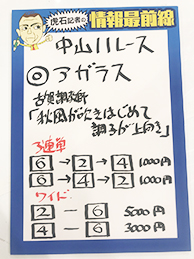 虎石記者の情報最前線
中山11レース
◎アガラス
古賀調教師
「秋風が吹きはじめて
調子が上向き」
3連単
6→2→4 1000円
6→4→2 1000円
ワイド
2－6 5000円
4－6 3000円